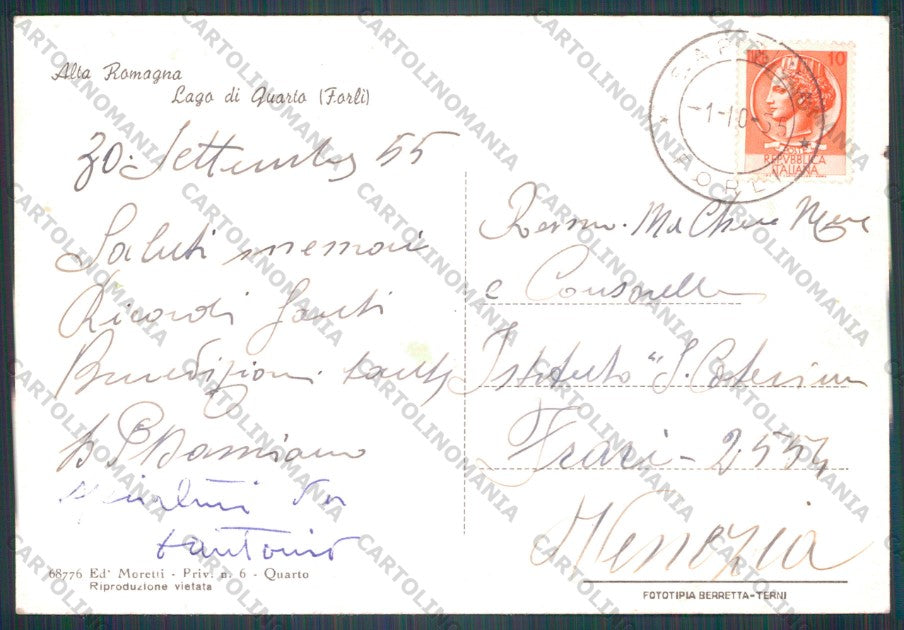 Alta Romagna
Lago di Quarto (Forlì)
30. Settembre 55
Saluti memori
Ricordi Santi
Benedizioni tante
P Damiano
Antonio
68776 Ed. Moretti - Priv. n. 6 - Quarto
Riproduzione vietata
-1-10-55
FORLI
10
POSTE
REPVBBLICA
ITALIANA
Revma. M Chiara
e Consorelle
Istituto "S. Caterina
Frari - 2554
Venezia
FOTOTIPIA BERRETTA-TERNI
CARTOLINOMANIA